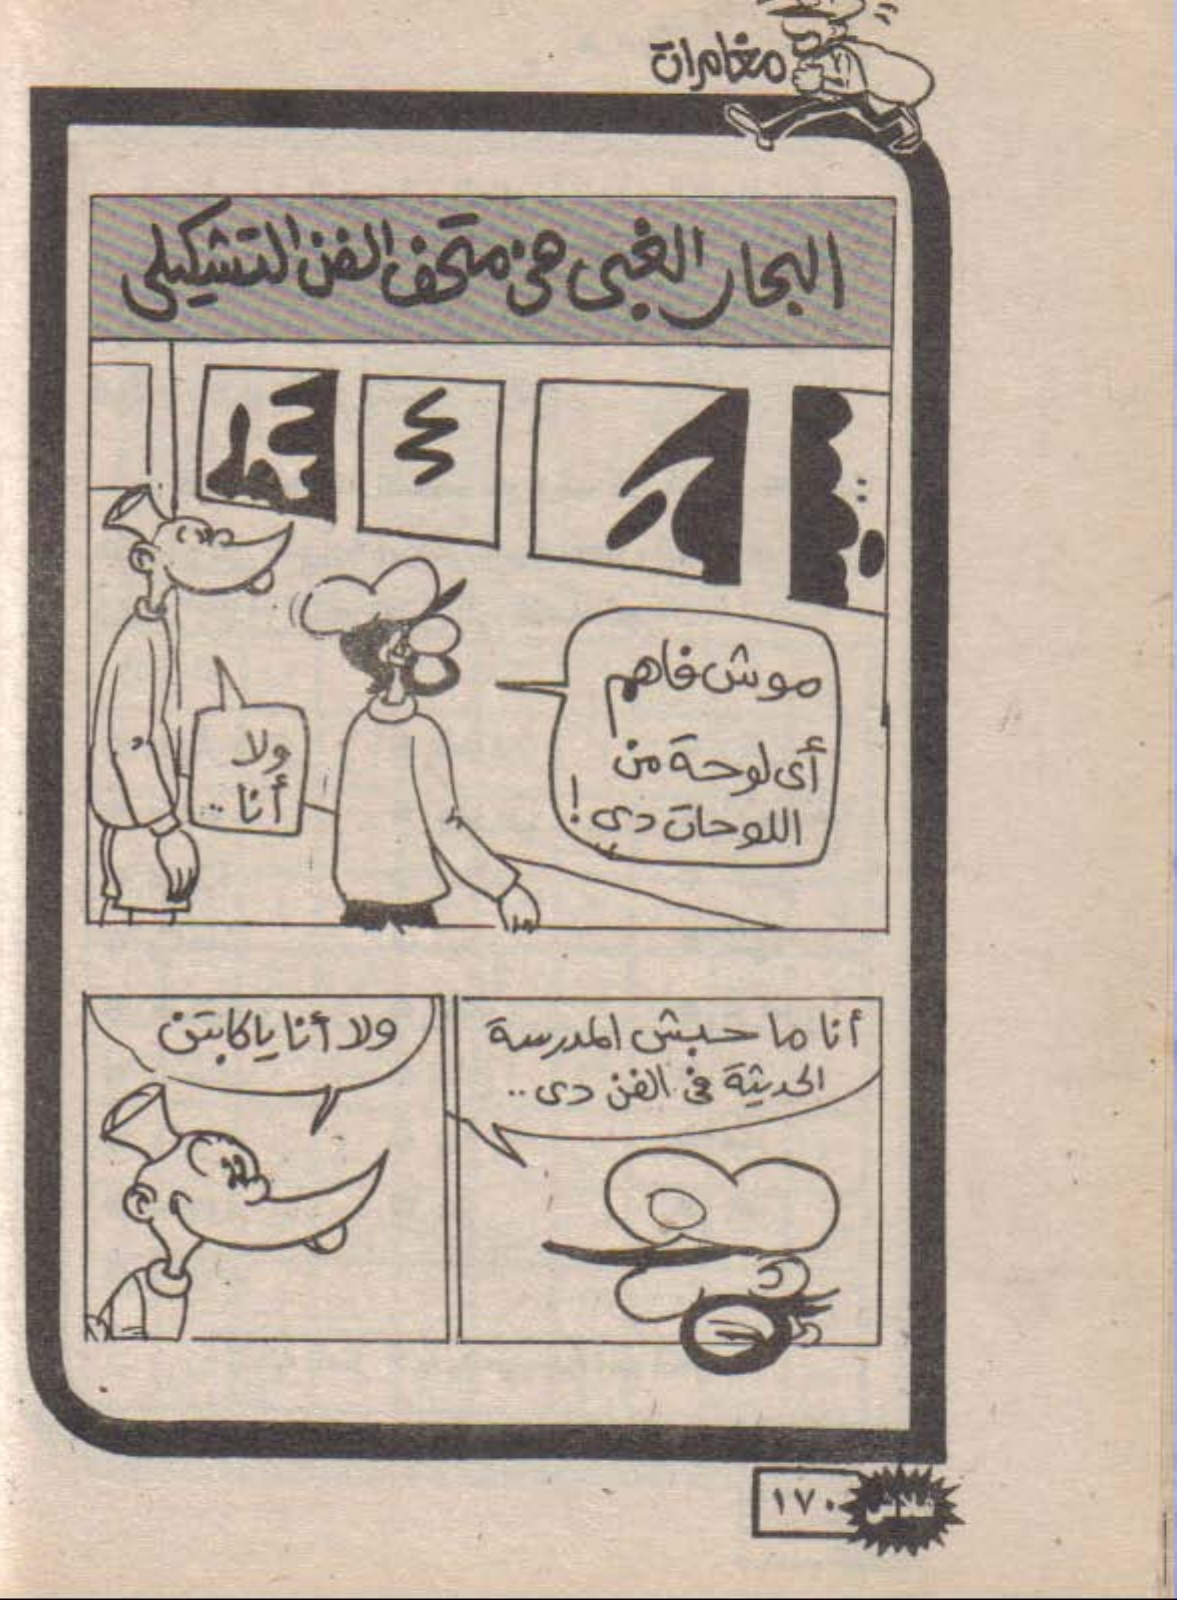 مغامرات
البحار الغبى فى متحف الفن التشكيلى
موش فاهم
أى لوحة من
اللوحات دى !
ولا
أنا ..
أنا ما حبش المدرسة
الحديثة فى الفن دى ..
ولا أنا يا كابتن
فلاش
١٧٠